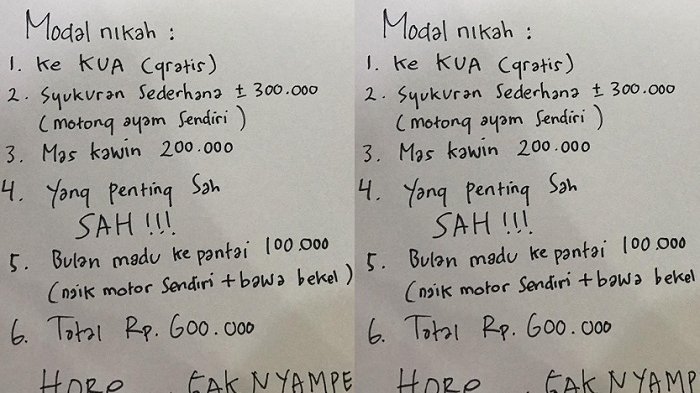 Modal nikah :
1. Ke KUA (gratis)
2. Syukuran Sederhana ± 300.000
(motong ayam Sendiri)
3. Mas kawin 200.000
4. Yang penting Sah
SAH !!!
5. Bulan madu ke pantai 100.000
(naik motor Sendiri + bawa bekel)
6. Total Rp. 600.000
HORE GAK NYAMPE
Modal nikah :
1. Ke KUA (gratis)
2. Syukuran Sederhana ± 300.000
(motong ayam Sendiri)
3. Mas kawin 200.000
4. Yang penting Sah
SAH !!!
5. Bulan madu ke pantai 100.000
(naik motor Sendiri + bawa bekel
6. Total Rp. 600.000
HORE GAK NYAMP